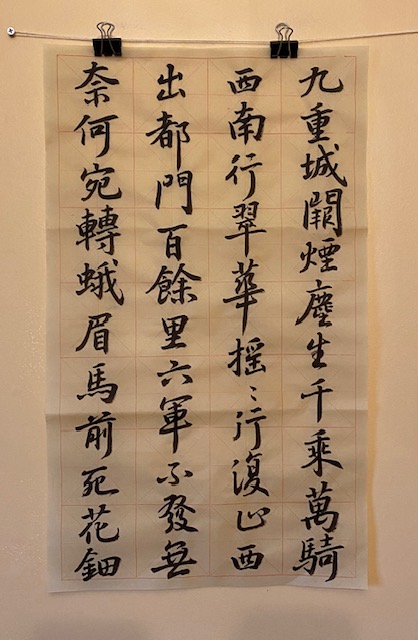 九重城闕煙塵生千乘萬騎
西南行翠華摇〻行復止西
出都門百餘里六軍不發無
奈何宛轉蛾眉馬前死花鈿